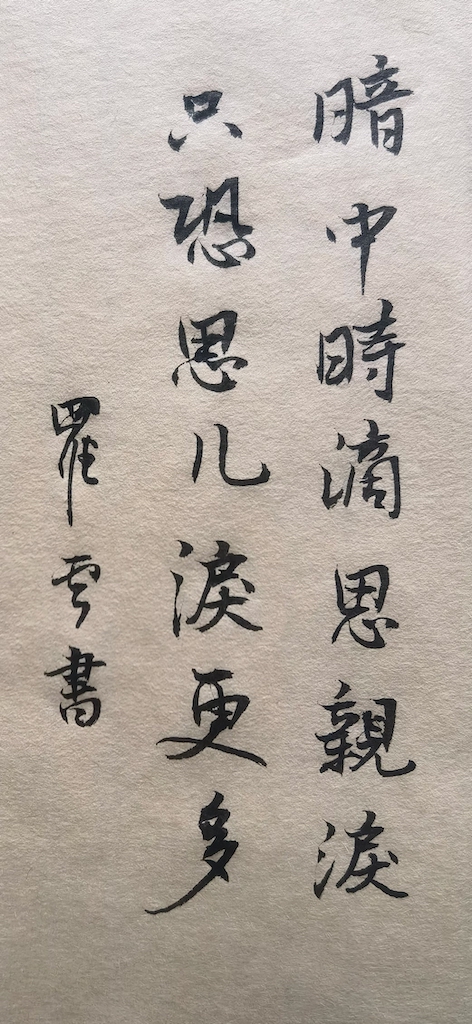 暗中時滴思親淚
只恐思儿淚更多
瞿雲書